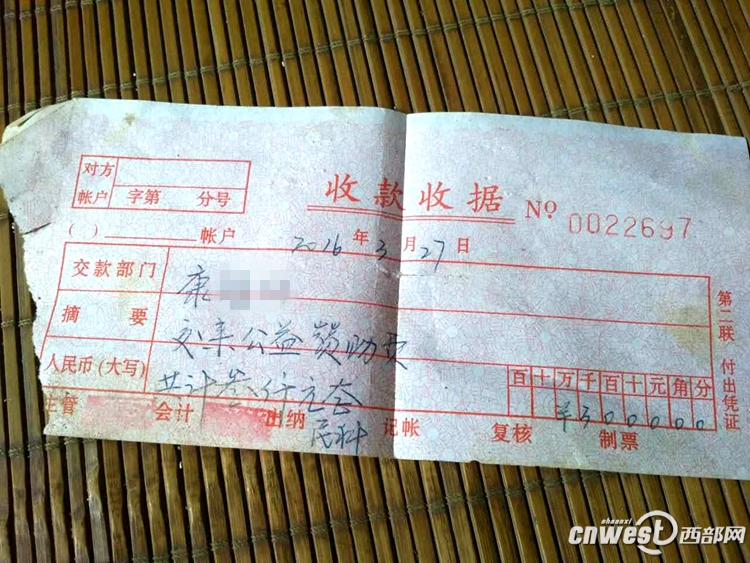 对方
帐户 字第 分号
收款收据 No 0022697
( ) 帐户 2016年3月27日
交款部门 康
摘要 交来公益员助费
人民币(大写) 共计叁仟元套
百十万千百十元角分
¥300000
主管 会计 出纳 民科 记帐 复核 制票
第二联 付出凭证
shaanxi
cnwest西部网